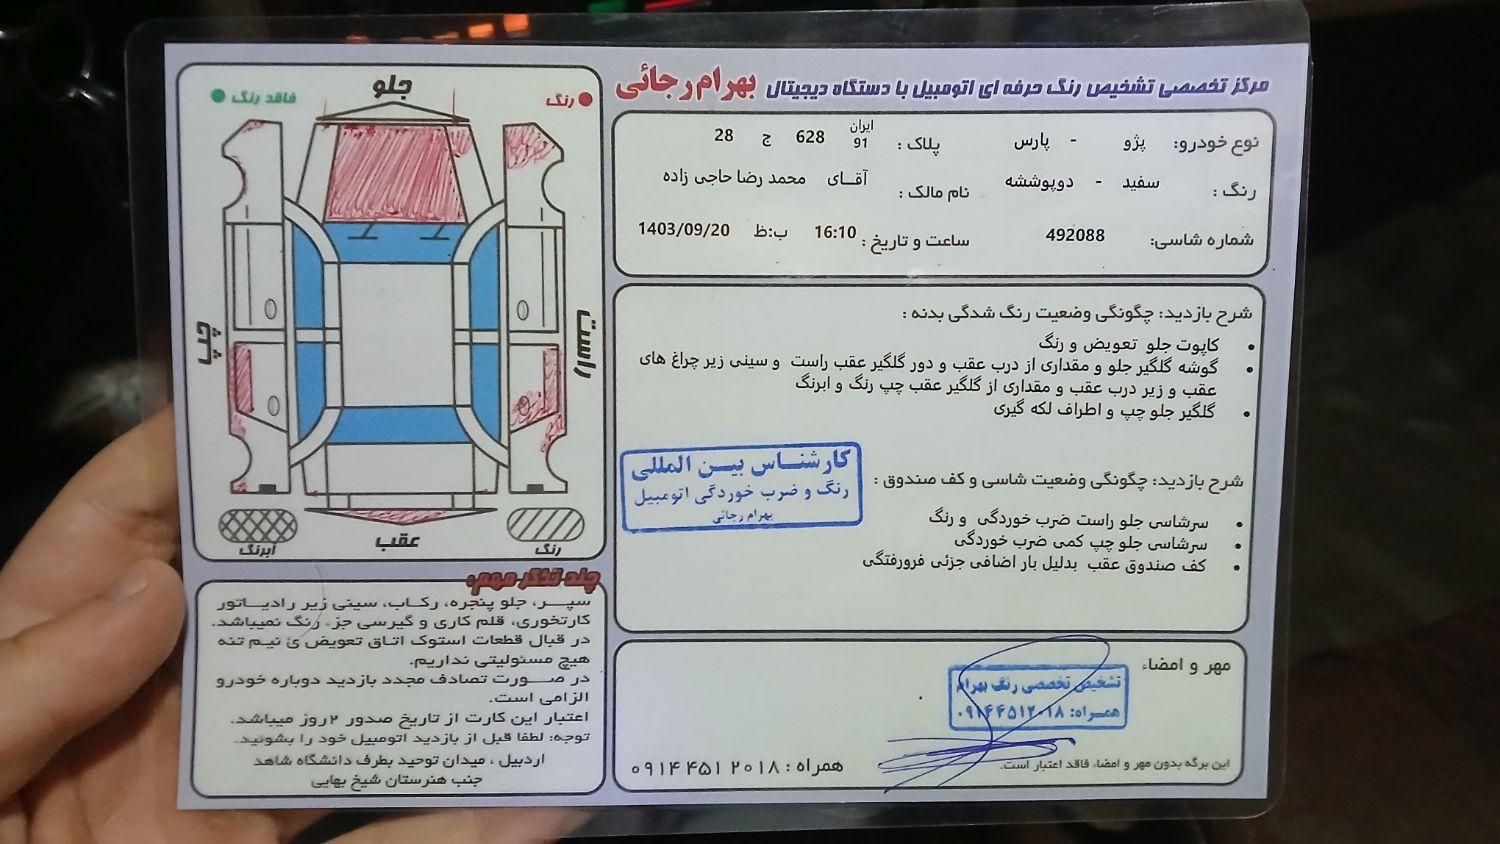 مرکز تخصصی تشخیص رنگ حرفه ای اتومبیل با دستگاه دیجیتال بهرام رجائی
نوع خودرو: پژو - پارس پلاک : ایران 91 628 ج 28
رنگ : سفید - دوپوششه نام مالک : آقای محمد رضا حاجی زاده
شماره شاسی: 492088 ساعت و تاریخ : 16:10 ب:ظ 1403/09/20
شرح بازدید: چگونگی وضعیت رنگ شدگی بدنه :
• کاپوت جلو تعویض و رنگ
• گوشه گلگیر جلو و مقداری از درب عقب و دور گلگیر عقب راست و سینی زیر چراغ های
عقب و زیر درب عقب و مقداری از گلگیر عقب چپ رنگ و ابرنگ
• گلگیر جلو چپ و اطراف لکه گیری
شرح بازدید: چگونگی وضعیت شاسی و کف صندوق :
• سرشاسی جلو راست ضرب خوردگی و رنگ
• سرشاسی جلو چپ کمی ضرب خوردگی
• کف صندوق عقب بدلیل بار اضافی جزئی فرورفتگی
کارشناس بین المللی
رنگ و ضرب خوردگی اتومبیل
بهرام رجائی
مهر و امضاء
تشخیص تخصصی رنگ بهرام
همراه: ۰۹۱۴۴۵۱۲۰۱۸
این برگه بدون مهر و امضاء، فاقد اعتبار است.
همراه : ۰۹۱۴ ۴۵۱ ۲۰۱۸
رنگ
فاقد رنگ
جلو
راست
چپ
عقب
رنگ
آبرنگ
چند تذکر مهم:
سپر، جلو پنجره، رکاب، سینی زیر رادیاتور
کارتخوری، قلم کاری و گیرسی جزء رنگ نمیباشد.
در قبال قطعات استوک اتاق تعویض ئ نیم تنه
هیچ مسئولیتی نداریم.
در صورت تصادف مجدد بازدید دوباره خودرو
الزامی است.
اعتبار این کارت از تاریخ صدور ۲ روز میباشد.
توجه: لطفا قبل از بازدید اتومبیل خود را بشوئید.
اردبیل ، میدان توحید بطرف دانشگاه شاهد
جنب هنرستان شیخ بهایی